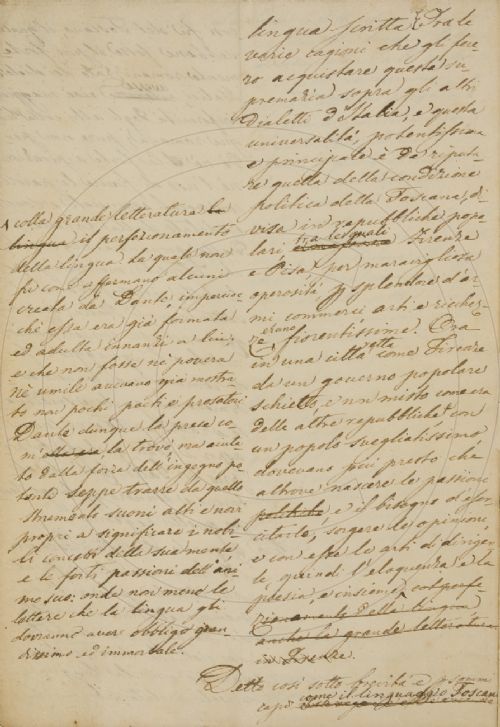 lingua scritta. Tra le
varie cagioni che gli fece-
ro acquistare questa su
premazia sopra gli altri
dialetti d'Italia, e questa
universalità, potentissima
e principale è da riputa-
re quella della condizione
politica della Toscana, di
visa in repubbliche popo
lari tra le quali Firenze
e Pisa per maravigliosa
operosità, splendore d'ar
mi commerci arti e ricchez
ze erano fiorentissime. Ora
in una città retta come Firenze
da un governo popolare
schietto, e non misto come era
delle altre repubbliche con
un popolo svegliatissimo
dovevano più presto che
altrove nascere le passioni
politiche e il bisogno d'eser
citarle, sorgere le opinioni,
e con esse le arti di dirigen
le quindi l'eloquenza e la
poesia, e insieme col perfe
zionamento della lingua
anche la grande letteratura
in Firenze.
colla grande letteratura la
lingua il perfezionamento
della lingua la quale non
fu come affermano alcuni
creata da Dante imperoc
chè essa era già formata
ed adulta innanzi a lui
e che non fosse nè povera
nè umile avevano già mostra
to non pochi poeti e prosatori
Dante dunque la prese co
m'ella era la trovò ma aiuta
to dalla forza dell'ingegno po
tente seppe trarre da quello
strumento suoni alti e novi
propri a significare i nobi
li concetti della sua mente
e le forti passioni dell'ani
mo suo: onde non meno le
lettere che la lingua gli
dovranno aver obbligo gran
dissimo ed immortale.
Detto così sotto brevità e somm
capi come il linguaggio Toscano